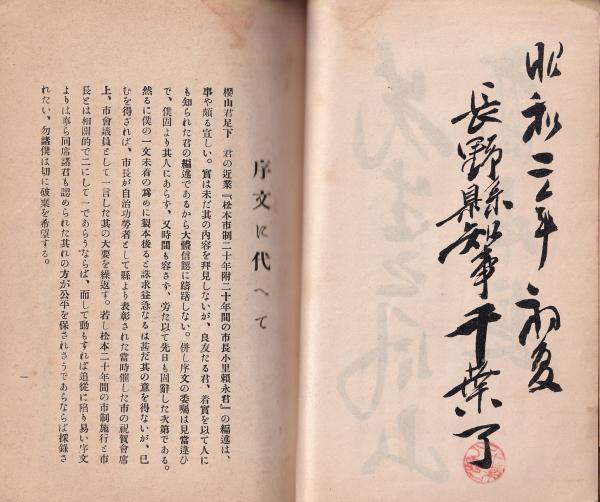 昭和二年初夏
長野縣知事千葉了
序文に代へて
櫻山君足下　君の近業『松本市制二十年附二十年間の市長小里賴永君』の編述は、
事や頗る宜しい。實は未だ其の內容を拜見しないが、良友たる君、着實を以て人に
も知られた君の編述であるから大體信認に躊躇しない。併し序文の委囑は見當違ひ
で、僕固より其人にあらず、又時間も容さず、旁た以て先日も固辭した次第である。
然るに僕の一文未着の爲めに製本後ると誅求益急なるは甚だ其の意を得ないが、已
むを得されば、市長が自治功勞者として縣より表彰された當時催した市の祝賀會席
上、市會議員として一言した其の大要を繰返す。若し松本二十年間の市制施行と市
長とは相關的で二にして一であらうならば、而して動もすれば追從に陷り易い序文
よりは寧ろ同席諸君も認められた其れの方が公平を保されさうであらならば採錄さ
れたい、勿諸僕は切に破棄を希望する。
一